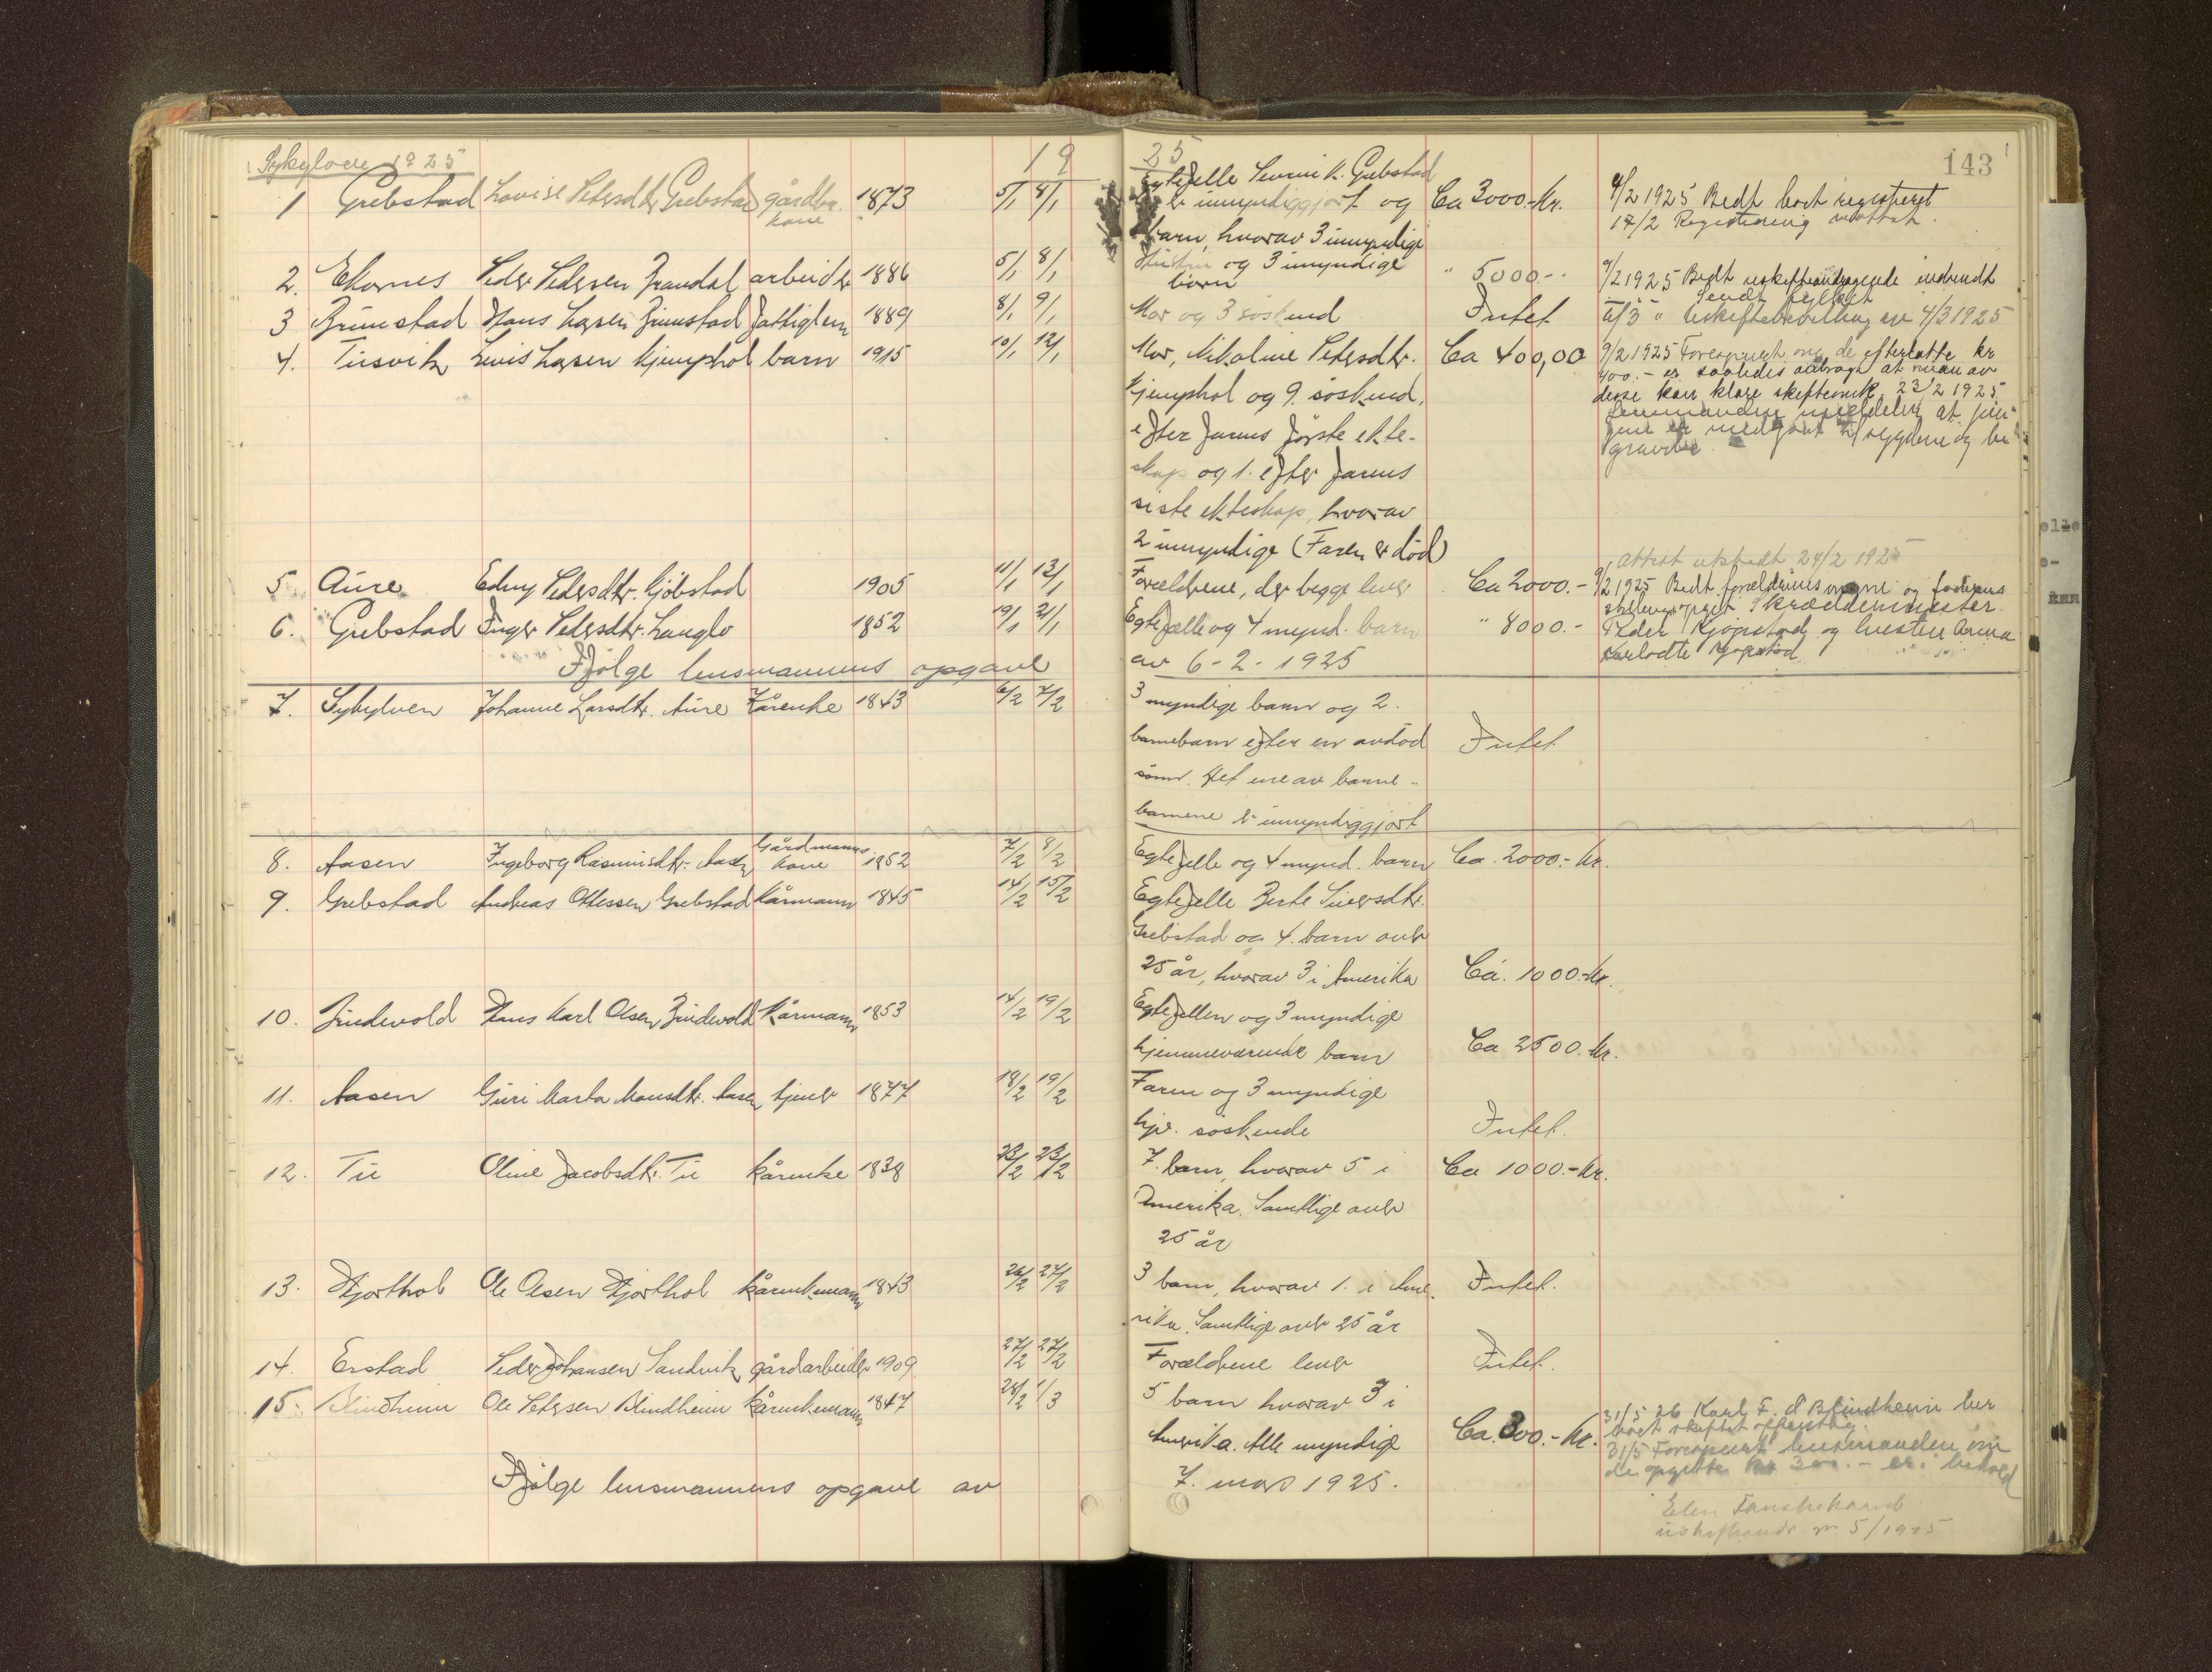 Sykylven 1925
19
25
143
1 Grebstad Lovise Petersdtr. Grebstad gårdbr. 1873 5/1 8/1
kone
Egtefelle Sevrin K. Grebstad
er umyndiggjort og Ca 3000.- Kr.
barn, hvorav 3 umyndige
9/2 1925 Bedt boet registreret
17/2 Registrering mottat.
2. Ekornes Peder Pedersen Brandal arbeider 1886 5/1 8/1
Hustru og 3 umyndige " 5000.-
born
9/2 1925 Bedt uskifteandragende indsendt
Sendt fylket
3 Brunstad Hans Larsen Brunstad fattiglem 1889 8/1 9/1
Mor og 3 söskend Intet
4/3 " Uskiftebevilling av 4/3 1925
4. Tusvik Lewis Larsen Kjemphol barn 1915 10/1 12/1
Mor, Nikoline Petersdtr. Ca 400,00
Kjemphol og 9. söskend,
efter farens förste ekte-
skap og 1. efter farens
siste ekteskap, hvorav
2 umyndige (Faren er död)
9/2 1925 Forespurgt om de efterlatte kr
400.- er saaledes at man av
disse kan klare skifteomk. 23/2 1925
lensmanden meddeler at pen-
gene er medgaat til sygdom og be-
gravelse
5. Aure Edny Pedersdtr. Gjöbstad 1905 11/1 13/1
Forældrene, der begge lever Ca 2000.-
Attest utstedt 24/2 1925
9/2 1925 Bedt forældrenes navne og faderens
stilling opgit Skræddermester
Peder Gjöpstad og hustru Anna
Gjöpstad
6. Grebstad Inger Pedersdtr. Langlo 1852 19/1 21/1
Egtefælle og 4 mynd. barn " 8000.-
Ifölge lensmannens opgave
av 6-2-1925
7. Sykylven Johanne Larsdtr. Aure Kårenke 1843 6/2 7/2
3 myndige barn og 2.
barnebarn efter en avdöd Intet
sönn. Det ene av barne-
barnene er umyndiggjort
8. Aasen Ingeborg Rasmusdtr. Aasen Gårdmanns kone 1852 7/2 8/2
Egtefelle og 4 mynd. barn Ca. 2000.- Kr.
9. Grebstad Andreas Ottessen Grebstad Kårmann 1845 14/2 15/2
Egtefelle Berte Siversdtr.
Grebstad og 4. barn over
25 år, hvorav 3 i Amerika Ca. 1000.- Kr.
10. Bindevold Hans Karl Olsen Bindevold Kårmann 1853 14/2 19/2
Egtefellen og 3 myndige
hjemmeværende barn Ca 2500. Kr.
11. Aasen Guri Marta Monsdtr. Aasen tjener 1877 18/2 19/2
Faren og 3 myndige
hjv. söskende Intet.
12. Tu Oline Jacobsdtr. Tu kårenke 1838 23/2 23/2
7. barn, hvorav 5 i Ca 1000.- Kr.
Amerika. Samtlige over
25 år
13. Hjorthol Ole Olsen Hjorthol kårenkemann 1843 26/2 27/2
3 barn, hvorav 1. i Ame- Intet.
rika. Samtlige over 25 år
14. Erstad Peder Johansen Sandvik gårdarbeider 1909 27/2 27/2
Forældrene lever Intet.
15. Blindheim Ole Petersen Blindheim kårenkemann 1847 28/2 1/3
5 barn hvorav 3 i
Amerika. Alle myndige Ca. 300.- Kr.
31/5 26 Karl F. O Blindheim ber
boet skiftet offentlig.
31/5 Forespurt lensmanden om
de opgitte kr 300.- er i behold
Ifölge lensmannens opgave av
7. mars 1925.
5/1925